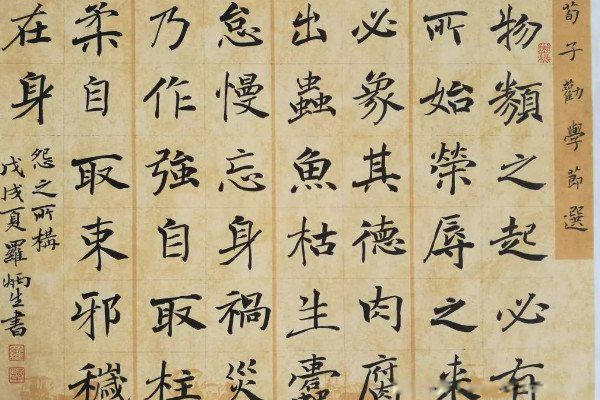 荀子勸學節選
物類之起必有
所始榮辱之来
必象其德肉腐
出蟲魚枯生蠹
怠慢忘身禍災
乃作強自取柱
柔自取束邪穢
在身
怨之所構
戊戌夏羅炳生書